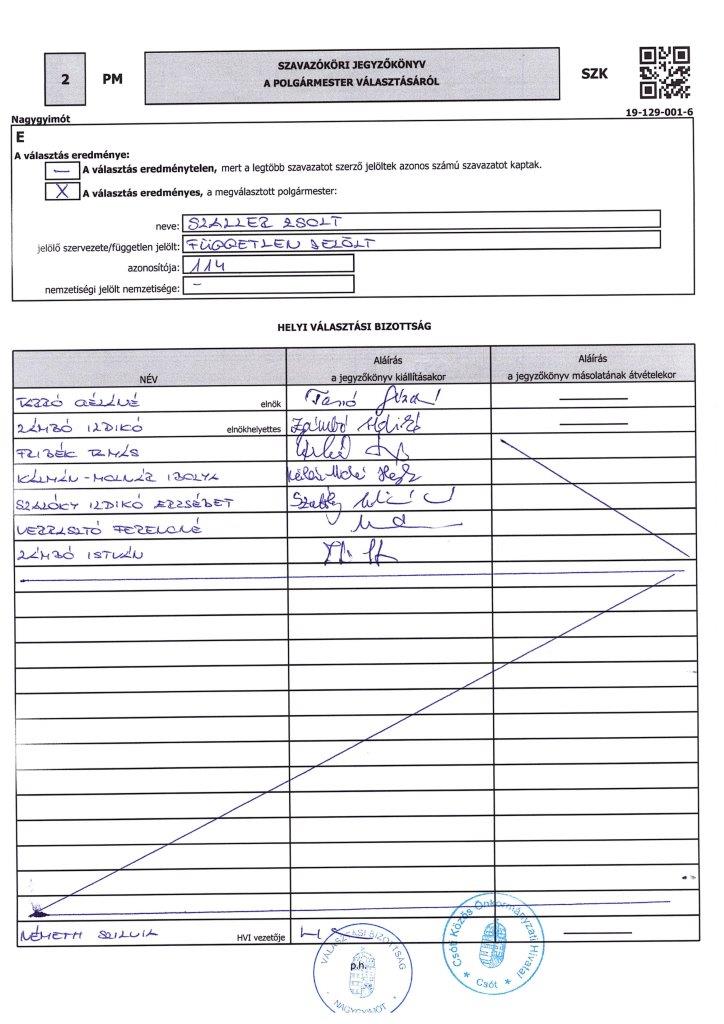 2 PM SZAVAZÓKÖRI JEGYZŐKÖNYV SZK
A POLGÁRMESTER VÁLASZTÁSÁRÓL
19-129-001-6
Nagygyimót
E
A választás eredménye:
— A választás eredménytelen, mert a legtöbb szavazatot szerző jelöltek azonos számú szavazatot kaptak.
X A választás eredményes, a megválasztott polgármester:
neve: SZALLER ZSOLT
jelölő szervezete/független jelölt: FÜGGETLEN JELÖLT
azonosítója: 114
nemzetiségi jelölt nemzetisége: -
HELYI VÁLASZTÁSI BIZOTTSÁG
NÉV Aláírás a jegyzőkönyv kiállításakor Aláírás a jegyzőkönyv másolatának átvételekor
GÉZÁNÉ elnök
ZÁMBÓ ILDIKÓ elnökhelyettes Zámbó Ildikó
TAMÁS
KÁLMÁN-MOLNÁR IBOLYA
SZALÓKY ILDIKÓ ERZSÉBET
VERRASZTÓ FERENCNÉ
ZÁMBÓ ISTVÁN
NÉMETH SZILVIA HVI vezetője
VÁLASZTÁSI BIZOTTSÁG
p.h.
NAGYGYIMÓT
Csóti Közös Önkormányzati Hivatal
* Csót *